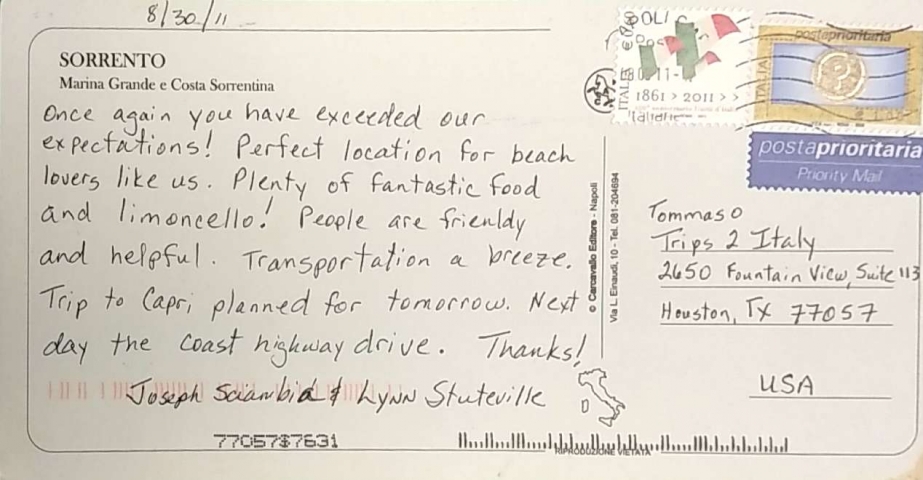 8/30/11
SORRENTO
Marina Grande e Costa Sorrentina
Once again you have exceeded our
expectations! Perfect location for beach
lovers like us. Plenty of fantastic food
and limoncello! People are frienldy
and helpful. Transportation a breeze.
Trip to Capri planned for tomorrow. Next
day the coast highway drive. Thanks!
Joseph Sciambia & Lynn Stuteville
77057$7631
© Carcavallo Editore - Napoli
Via L. Einaudi, 10 - Tel. 081-204694
RIPRODUZIONE VIETATA
ITALIA €
1861 > 2011 > >
ITALIA
postaprioritaria
postaprioritaria
Priority Mail
Tommaso
Trips 2 Italy
2650 Fountain View, Suite 113
Houston, TX 77057
USA